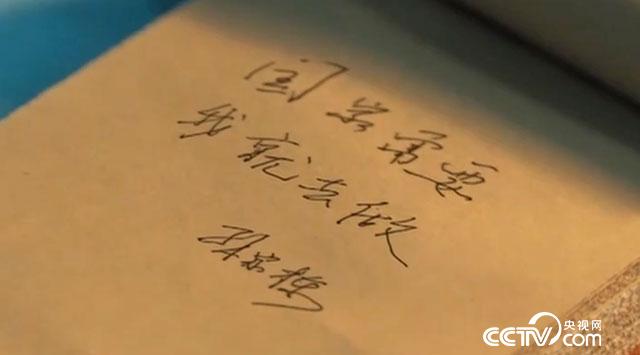 国家需要
我就去做
孙家栋
CCTV 央视网
com